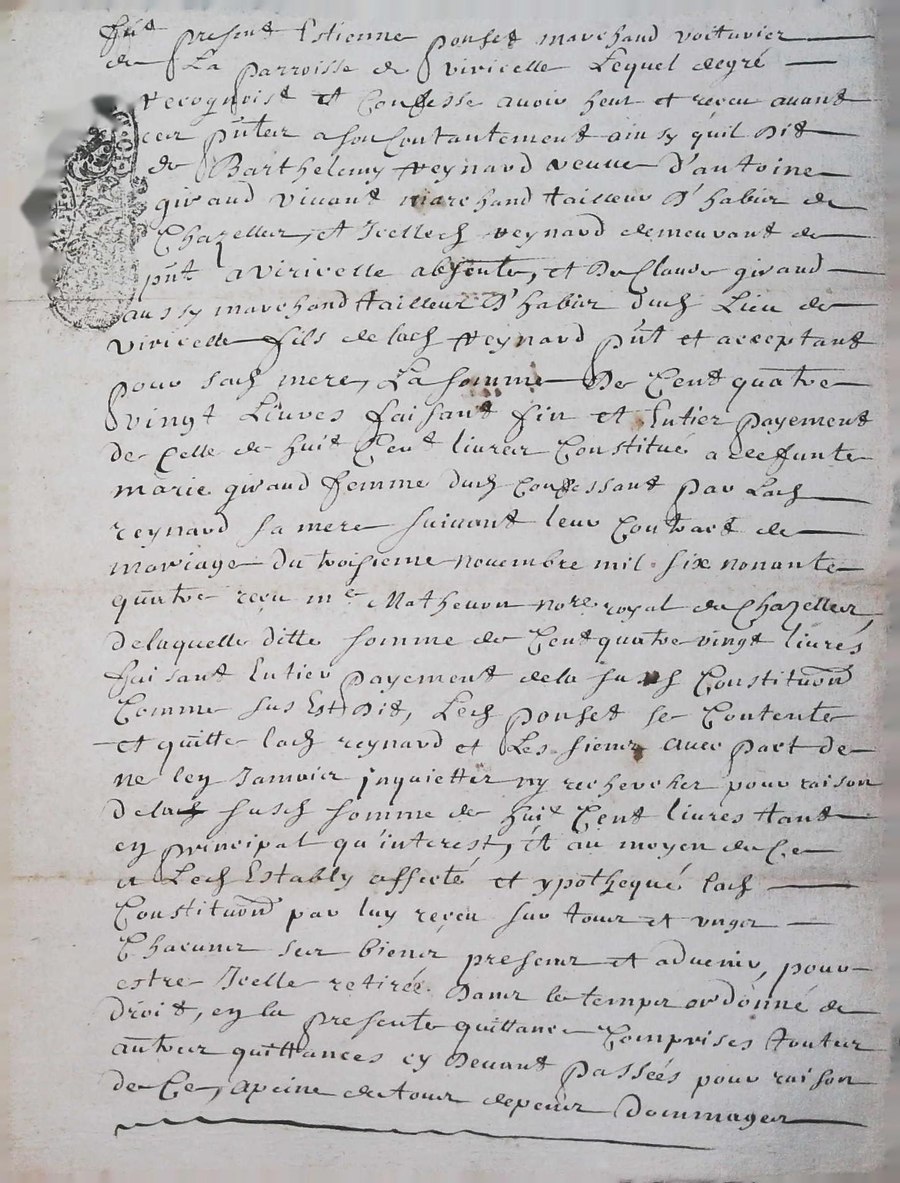 fut present Estienne ponset marchand voiturier
de La parroisse de viricelle Lequel de gré
recognoist et Confesse avoir heut et reçeu avant
ces pntes a son Contantement ainsy quil Dit
de Barthelemy Reynard veuve D'antoine
giraud vivant marchand tailleur D'habis de
Chazelles, et Icelle reynard demeurant de
pnt a viricelle absente, et De Claude giraud
aussy marchand tailleur D'habis dud Lieu de
viricelle fils de lad Reynard pnt et acceptant
pour sad mere, La somme De Cent quatre
vingt Livres faisant fin et Entier payement
de Celle de huit Cent livres Constitué a deffunte
marie giraud femme dud Confessant par Lad
reynard sa mere suivant leur Contract de
mariage du troisieme novembre mil six nonante
quatre reçu me Mathevon nore royal de Chazelles,
de laquelle ditte somme de Cent quatre vingt livres
faisant Entier payement de la susd Constituon
Comme sus Est Dit, Led ponset se Contente
et quitte lad reynard et Les siens avec pact de
ne ley Jamais inquietter ny rechercher pour raison
de lad susd somme de huit Cent livres tant
en principal qu'interest, et au moyen de Ce
a Led Estably affecté et ypothequé lad
Constituon par luy reçeu sur tous et ungs
Chacuns ses biens presens et advenir, pour
estre Icelle retirée Dans le temps ordonné de
droit, en la presente quittance Comprises touttes
autres quittances cy Devant passées pour raison
de Ce, a peine de tous depens Dommages